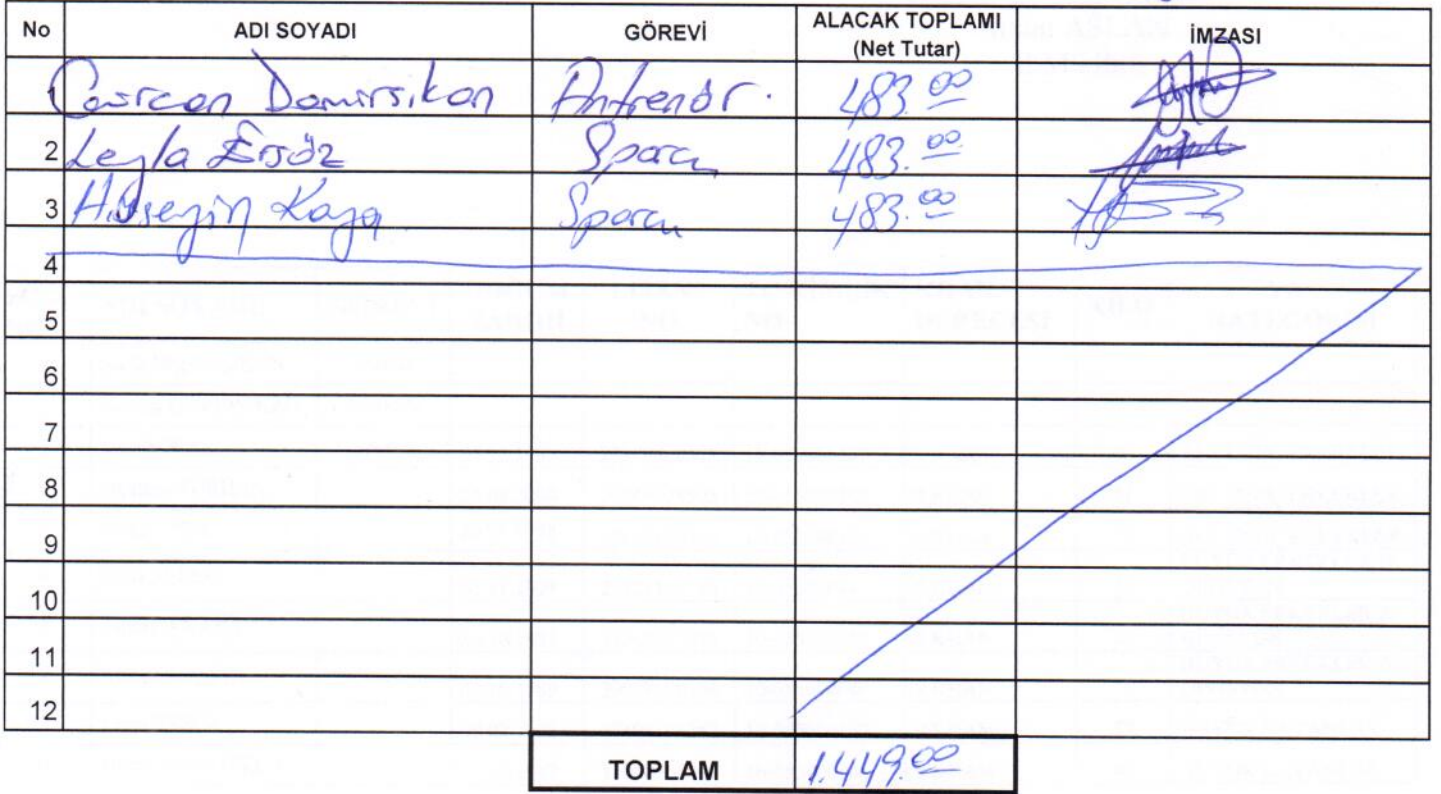 No ADI SOYADI GÖREVİ ALACAK TOPLAMI (Net Tutar) İMZASI
1 Damirsikan Antrenör. 483.00
2 Leyla Ersöz Sporcu 483.00
3 Hüseyin Kaya Sporcu 483.00
4
5
6
7
8
9
10
11
12
TOPLAM 1.449.00